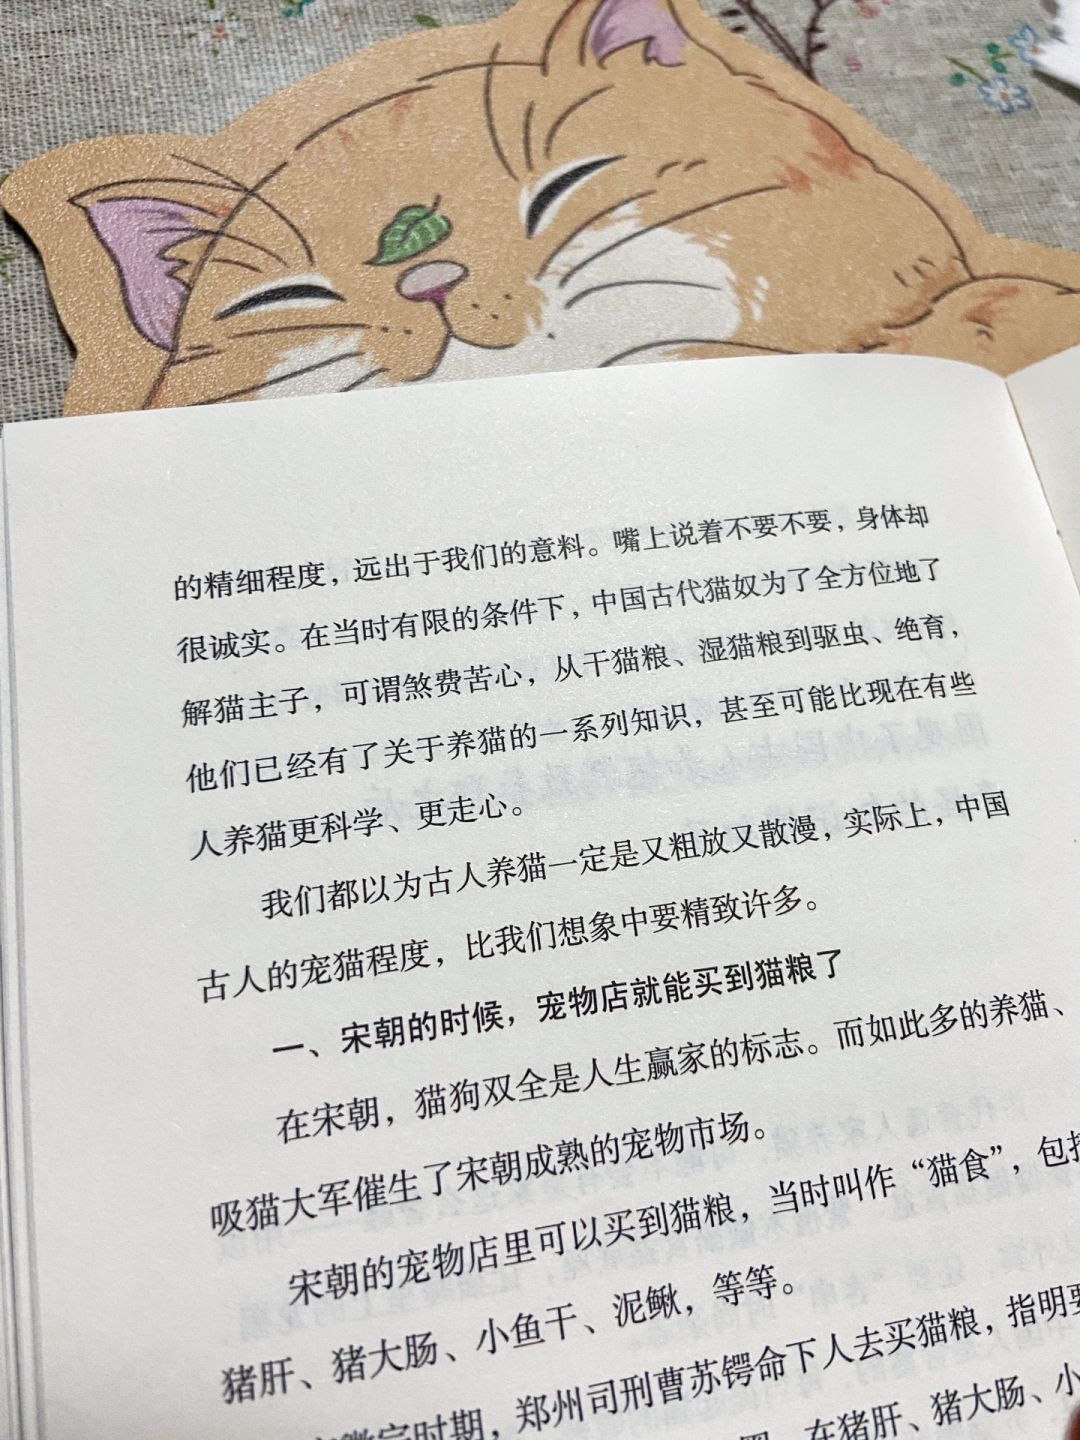 的精细程度，远出于我们的意料。嘴上说着不要不要，身体却
很诚实。在当时有限的条件下，中国古代猫奴为了全方位地了
解猫主子，可谓煞费苦心，从干猫粮、湿猫粮到驱虫、绝育，
他们已经有了关于养猫的一系列知识，甚至可能比现在有些
人养猫更科学、更走心。
我们都以为古人养猫一定是又粗放又散漫，实际上，中国
古人的宠猫程度，比我们想象中要精致许多。
一、宋朝的时候，宠物店就能买到猫粮了
在宋朝，猫狗双全是人生赢家的标志。而如此多的养猫、
吸猫大军催生了宋朝成熟的宠物市场。
宋朝的宠物店里可以买到猫粮，当时叫作“猫食”，包括
猪肝、猪大肠、小鱼干、泥鳅，等等。
徽宗时期，郑州司刑曹苏锷命下人去买猫粮，指明要
在猪肝、猪大肠、小